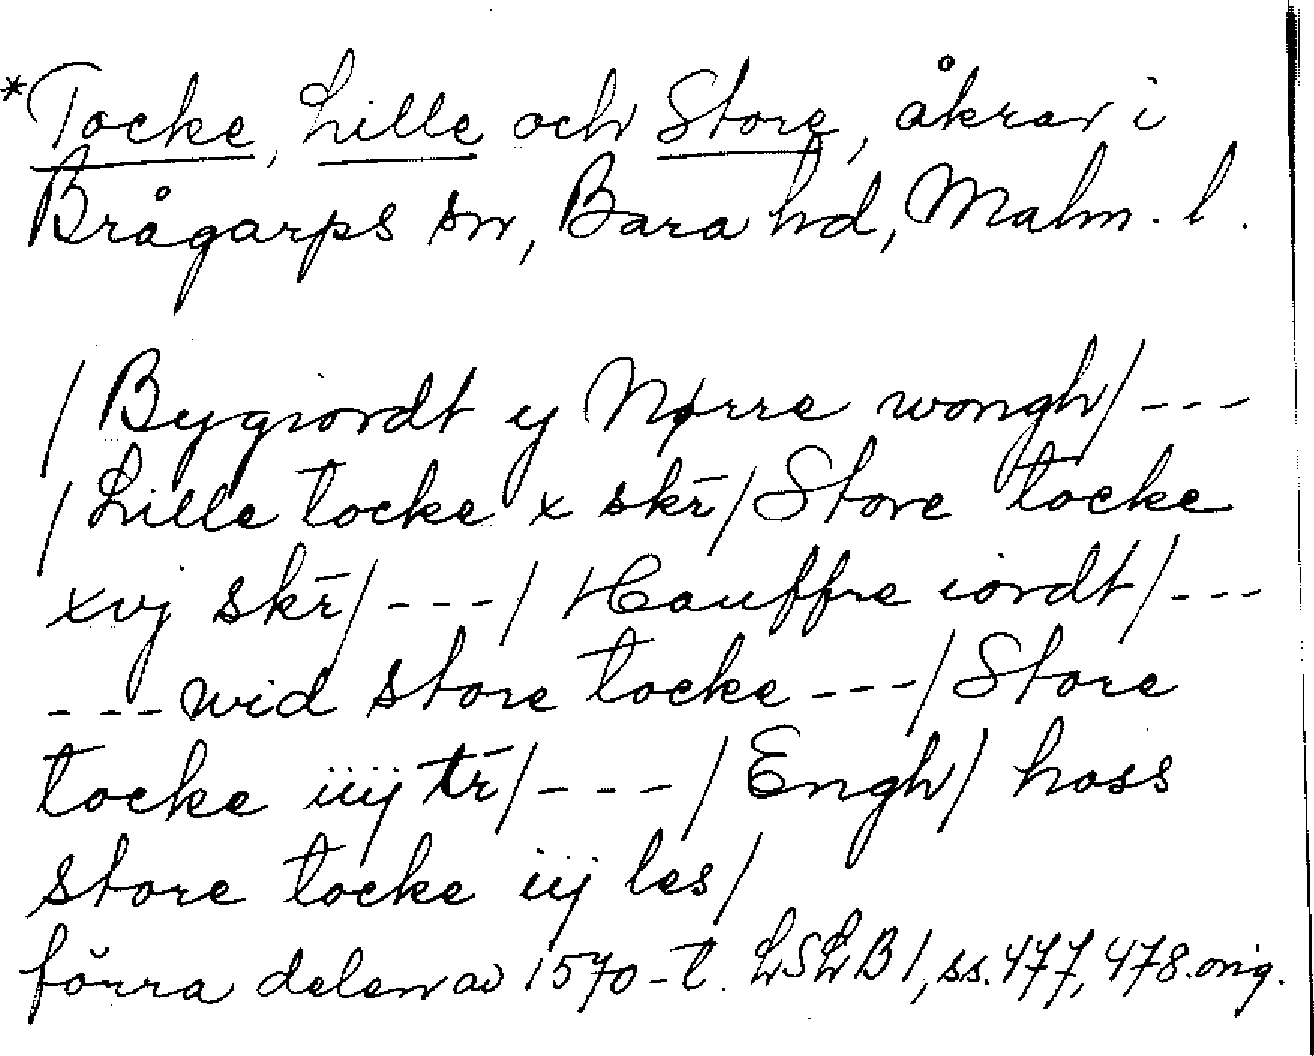 *Tocke, Lille och Store, åkrar i
Brågarps sn, Bara hd, Malm. l.
/Bygiordt y Nørre wongh/---
/Lille tocke x skr̄/Store tocke
xvj skr̄/---/Hauffre iordt/---
---wid store tocke---/Store
tocke iiij tr̄/---/Engh/ hoss
store tocke iij les/
förra delen av 1570-t. LSLB1, ss. 477, 478. orig.